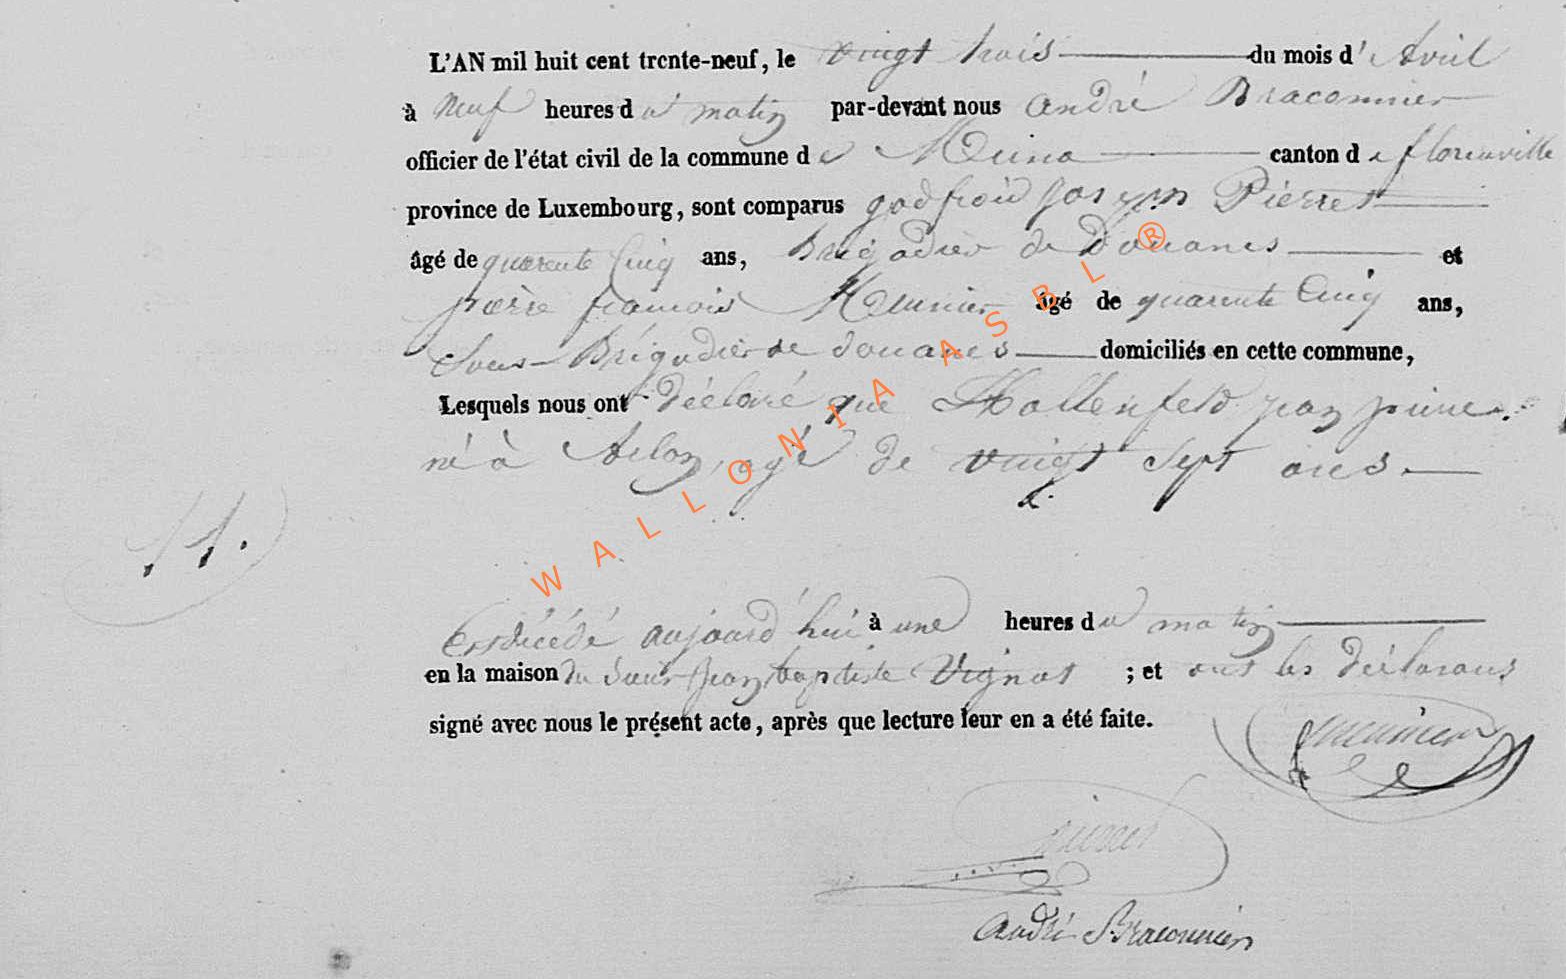 L'AN mil huit cent trente-neuf, le vingt trois du mois d' Avril
à Neuf heures du matin par-devant nous andré Braconnier
officier de l'état civil de la commune de Muno canton de florenville
province de Luxembourg, sont comparus godfroid Pierret
âgé de quarente Cinq ans, Brigadier de Douanes et
pierre francois Meunier âgé de quarente Cinq ans,
Sous-Brigadier de douanes domiciliés en cette commune,
Lesquels nous ont déclaré que Hollenfeld jean pierre
né à Arlon, agé de vingt Sept ans.
11.
Est décédé aujourd'hui à une heures du matin
en la maison du Sieur jean baptiste Vignot ; et ont les déclarans
signé avec nous le présent acte, après que lecture leur en a été faite.
meunier
pierret
André Braconnier
WALLONIA ASBL ®